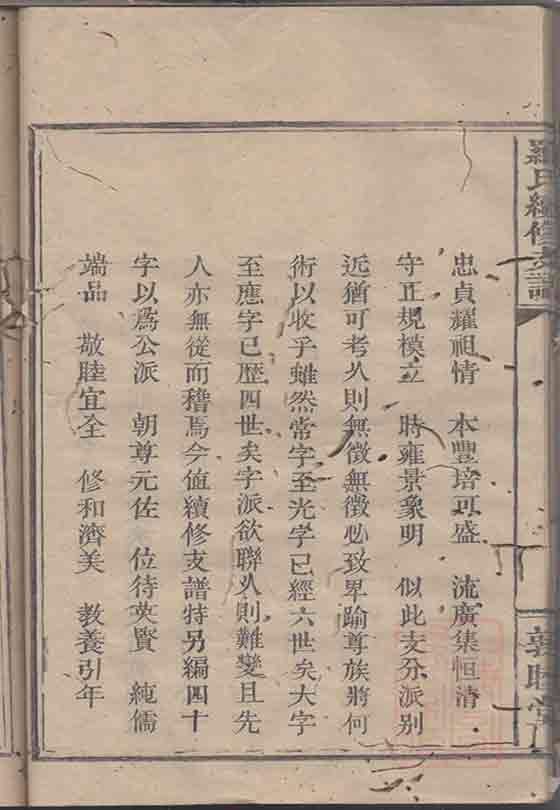 羅氏續修支譜
敦睦堂
忠貞耀祖情 本豐培可盛 流廣集恒清
守正規模立 時雍景象明 似此支分派別
近猶可考久則無徵無徵必致卑踰尊族將何
術以收乎雖然常字至光字已經六世矣大字
至應字已歷四世矣字派欲聯久則難變且先
人亦無從而稽焉今值續修支譜特另編四十
字以爲公派 朝尊元佐 位待英賢 純儒
端品 敬睦宜全 修和濟美 教養引年